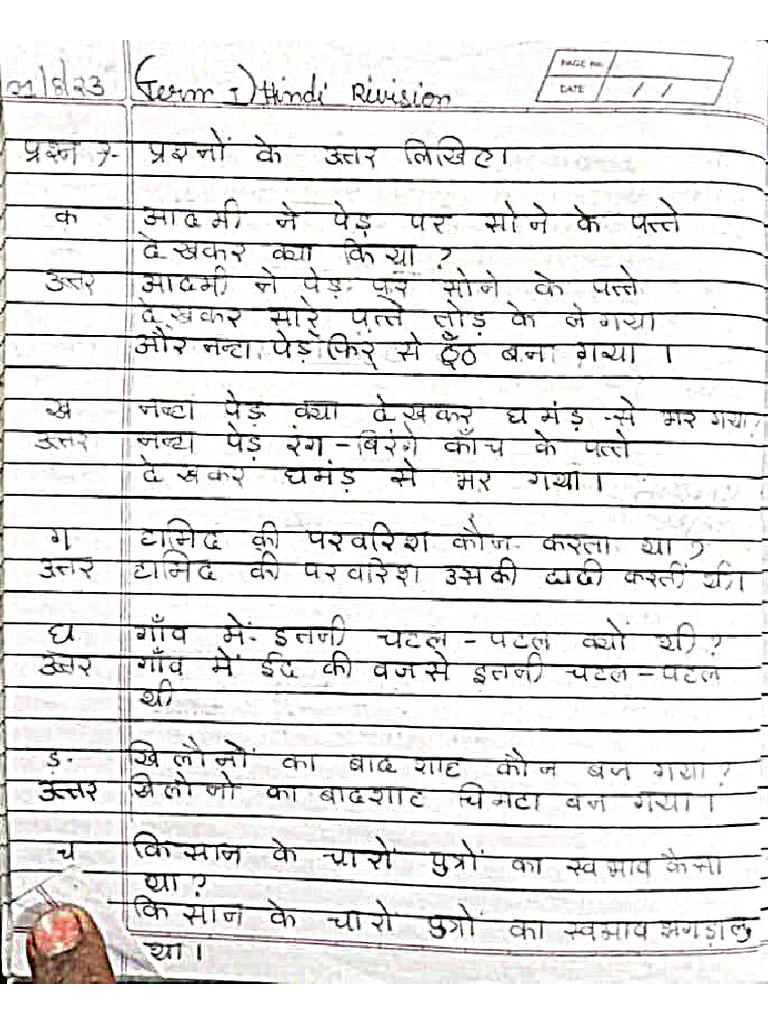 21/8/23 (Term I) Hindi Rivision
PAGE NO.
DATE / /
प्रश्न 7- प्रश्नों के उत्तर लिखिए।
क आदमी ने पेड़ पर सोने के पत्ते
देखकर क्या किया ?
उत्तर आदमी ने पेड़ पर सोने के पत्ते
देखकर सारे पत्ते तोड़ के ले गया
और नन्हा पेड़ फिर से ठूँठ बना गया ।
ख नन्हा पेड़ क्या देखकर घमंड से भर गया?
उत्तर नन्हा पेड़ रंग-बिरंगे काँच के पत्ते
देखकर घमंड से भर गया।
ग हामिद की परवरिश कौन करता था ?
उत्तर हामिद की परवरिश उसकी दादी करती थी।
घ गाँव में इतनी चहल-पहल क्यो थी ?
उत्तर गाँव में ईद की वजसे इतनी चहल-पहल
थी
ड़. खिलौनों का बादशाह कौन बन गया ?
उत्तर खिलोनो का बादशाह चिमटा बन गया ।
च किसान के चारो पुत्रों का स्वभाव कैसा
था ?
किसान के चारो पुत्रों का स्वभाव झगड़ालु
था ।